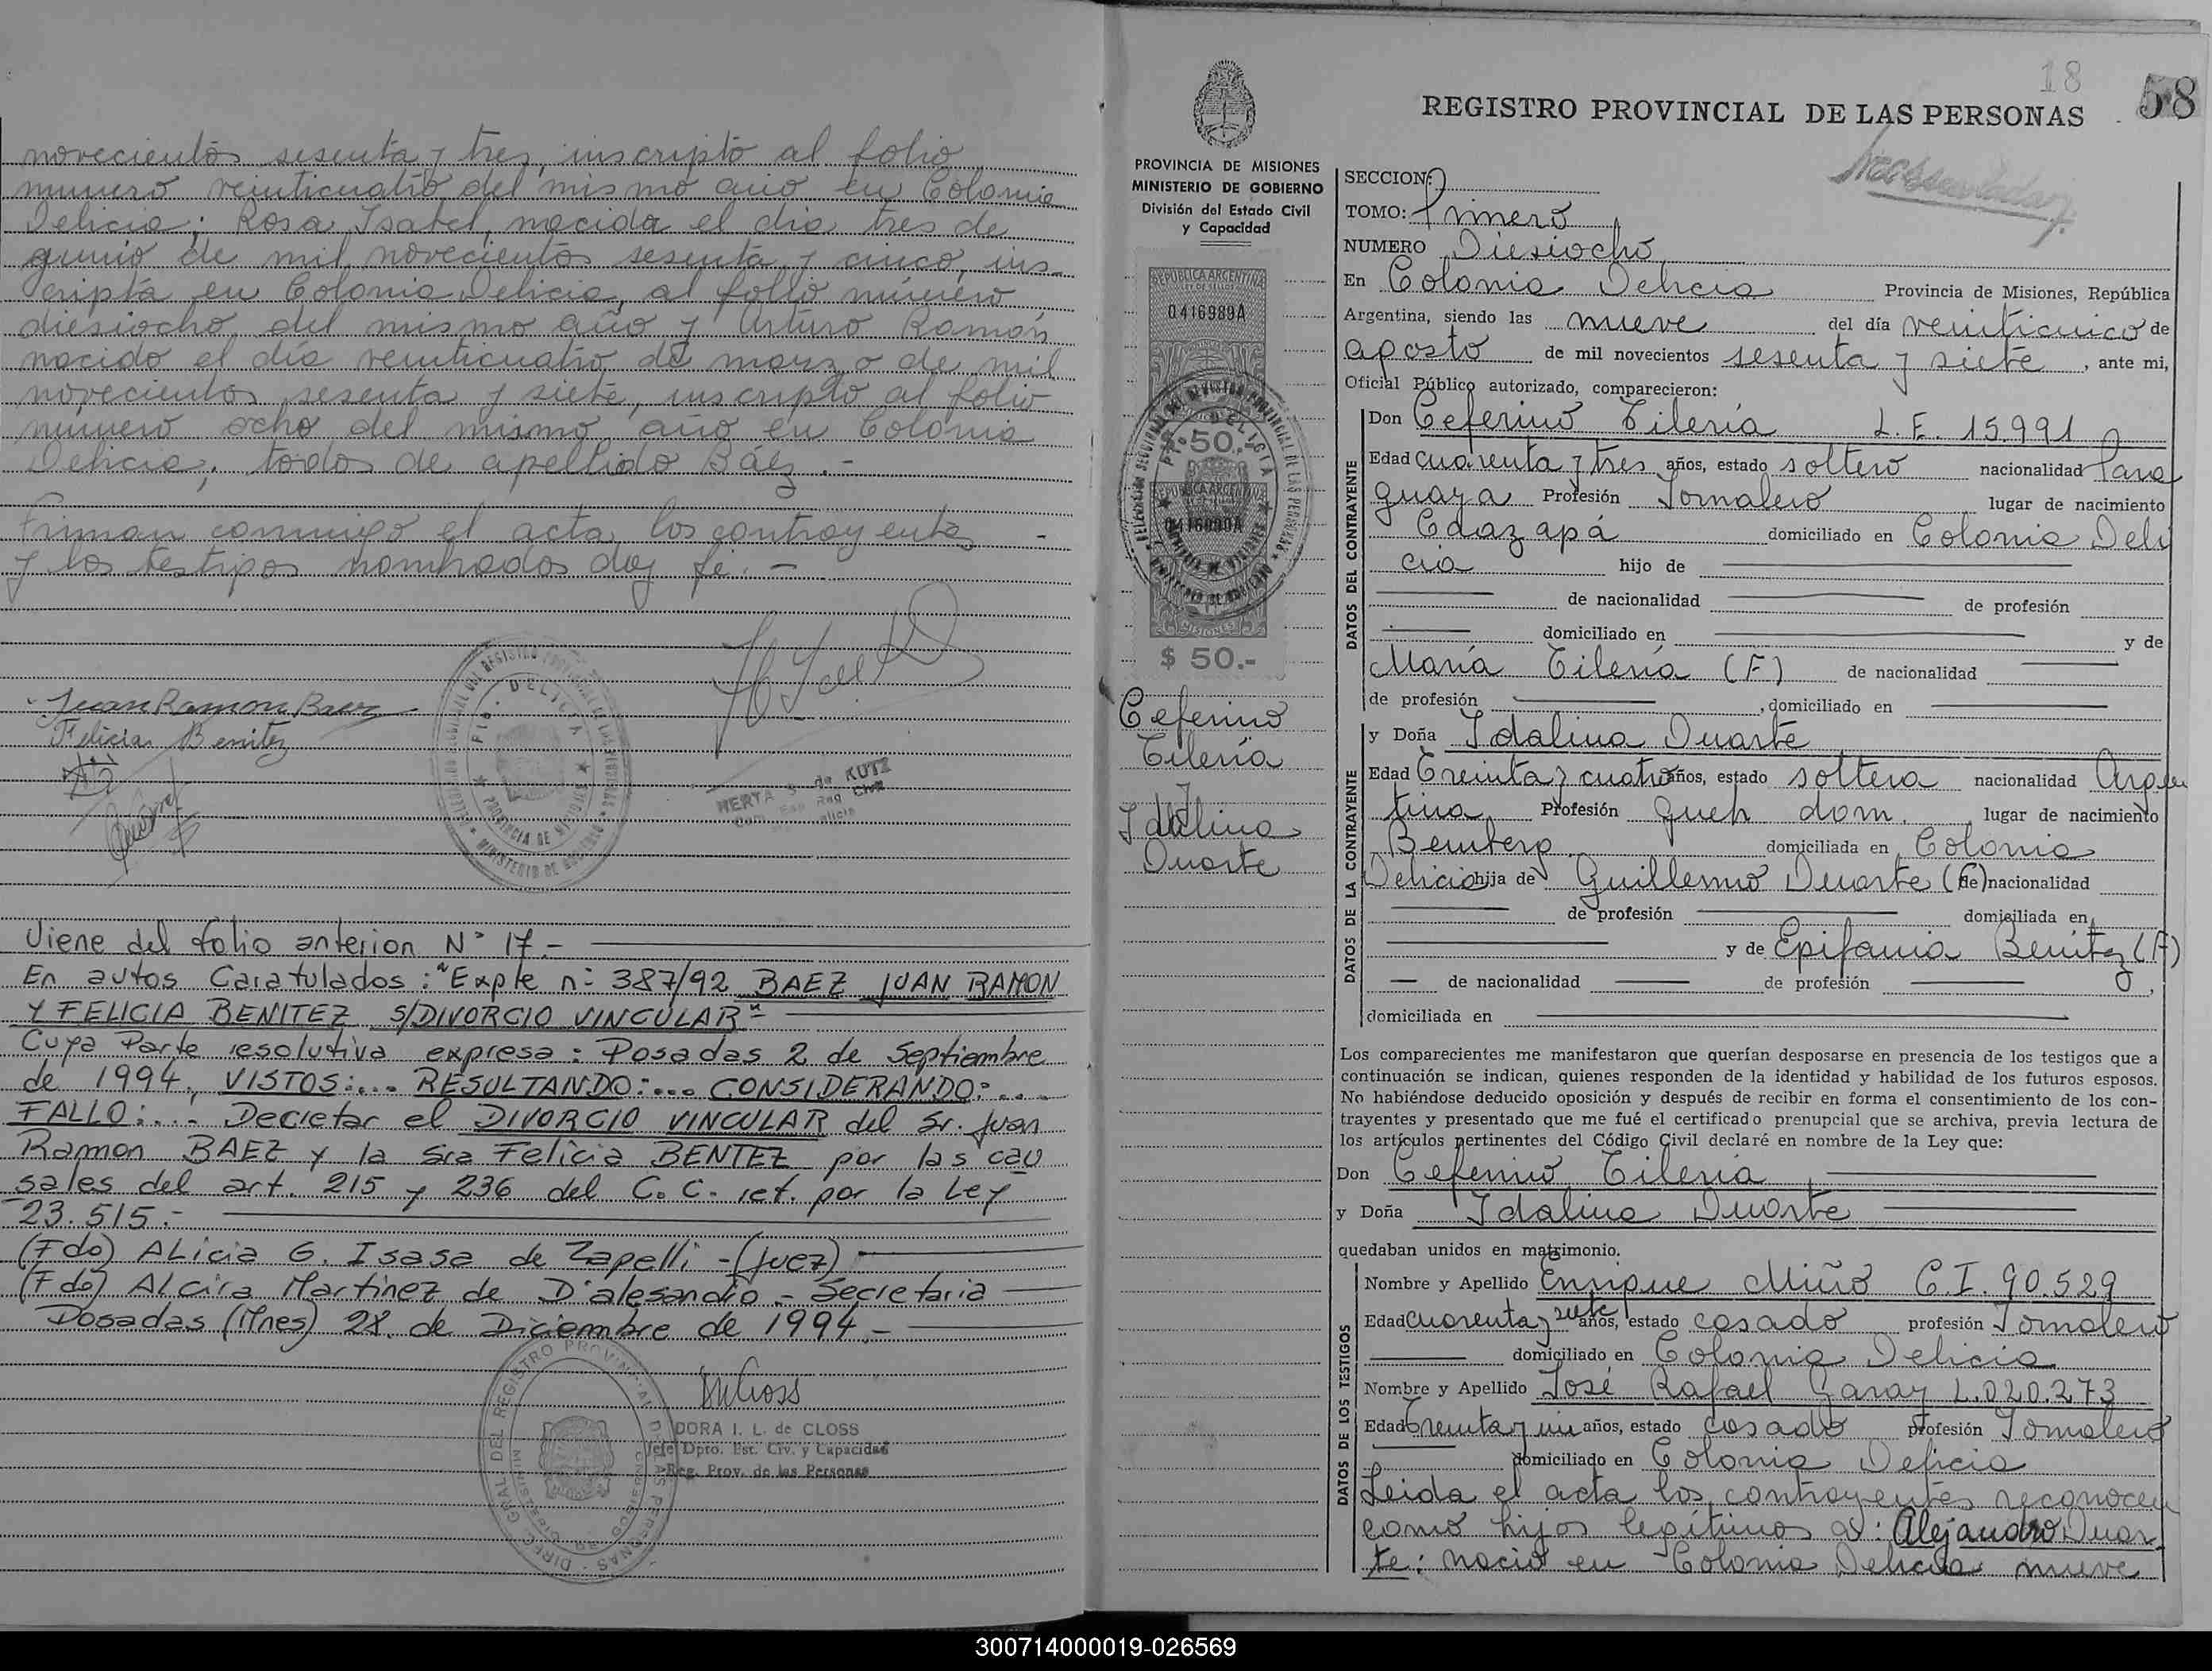 novecientos sesenta y tres, inscripto al folio
numero veinticuatro del mismo año en Colonia
Delicia; Rosa Isabel, nacida el día tres de
junio de mil novecientos sesenta y cinco, ins-
cripta en Colonia Delicia, al folio número
diesiocho del mismo año y Arturo Ramón
nacido el día veinticuatro de marzo de mil
novecientos sesenta y siete, inscripto al folio
número ocho del mismo año en Colonia
Delicia; todos de apellido Báez.-
Firman conmigo el acta los contrayentes -
y los testigos nombrados doy fé. -
Juan Ramon Baez
Felicia Benitez
HERTA S de KUTZ
Viene del folio anterior N° 17.-
En autos Caratulados: "Expte n: 387/92 BAEZ JUAN RAMON
Y FELICIA BENITEZ S/DIVORCIO VINCULAR"
Cuya Parte resolutiva expresa: Posadas 2 de Septiembre
de 1994, VISTOS:... RESULTANDO:... CONSIDERANDO:...
FALLO:... Decretar el DIVORCIO VINCULAR del Sr. Juan
Ramon BAEZ y la Sra Felicia BENTEZ por las cau
sales del art. 215 y 236 del C.C. ref. por la Ley
23.515.-
(Fdo) Alicia G. Isasa de Zapelli -(Juez)
(Fdo) Alcira Martinez de D'alesandro - Secretaria
Posadas (Mnes) 28 de Diciembre de 1994.-
DORA I. L. de CLOSS
Jefe Dpto. Est. Civ. y Capacidad
Reg. Prov. de las Personas
18
58
REGISTRO PROVINCIAL DE LAS PERSONAS
PROVINCIA DE MISIONES
MINISTERIO DE GOBIERNO
División del Estado Civil
y Capacidad
REPUBLICA ARGENTINA
0416989A
$ 50.-
MISIONES
$ 50.-
Ceferino
Tilería
y
Idalina
Duarte
SECCION:
TOMO: Primero
NUMERO Diesiocho
En Colonia Delicia Provincia de Misiones, República
Argentina, siendo las nueve del día veinticinco de
agosto de mil novecientos sesenta y siete, ante mi,
Oficial Público autorizado, comparecieron:
DATOS DEL CONTRAYENTE
Don Ceferino Tilería L.E. 15.991
Edad cuarenta y tres años, estado soltero nacionalidad Para
guaya Profesión Jornalero lugar de nacimiento
Caazapá domiciliado en Colonia Deli
cia hijo de
de nacionalidad de profesión
domiciliado en y de
María Tilería (F) de nacionalidad
de profesión , domiciliado en
DATOS DE LA CONTRAYENTE
y Doña Idalina Duarte
Edad Treinta y cuatro años, estado soltera nacionalidad Argen
tina Profesión queh dom. lugar de nacimiento
Bemberg domiciliada en Colonia
Delicia hija de Guillermo Duarte (F) de nacionalidad
de profesión domiciliada en
y de Epifania Benitez (F)
de nacionalidad de profesión ,
domiciliada en
Los comparecientes me manifestaron que querían desposarse en presencia de los testigos que a
continuación se indican, quienes responden de la identidad y habilidad de los futuros esposos.
No habiéndose deducido oposición y después de recibir en forma el consentimiento de los con-
trayentes y presentado que me fué el certificado prenupcial que se archiva, previa lectura de
los artículos pertinentes del Código Civil declaré en nombre de la Ley que:
Don Ceferino Tilería
y Doña Idalina Duarte
quedaban unidos en matrimonio.
DATOS DE LOS TESTIGOS
Nombre y Apellido Enrique Miño C.I. 90.529
Edad cuarenta y siete años, estado casado profesión Jornalero
domiciliado en Colonia Delicia
Nombre y Apellido José Rafael Garay L.020.273
Edad Treinta y un años, estado casado profesión Jornalero
domiciliado en Colonia Delicia
Leida el acta los contrayentes reconocen
como hijos legítimos a: Alejandro Duar
te: nació en Colonia Delicia nueve
300714000019-026569